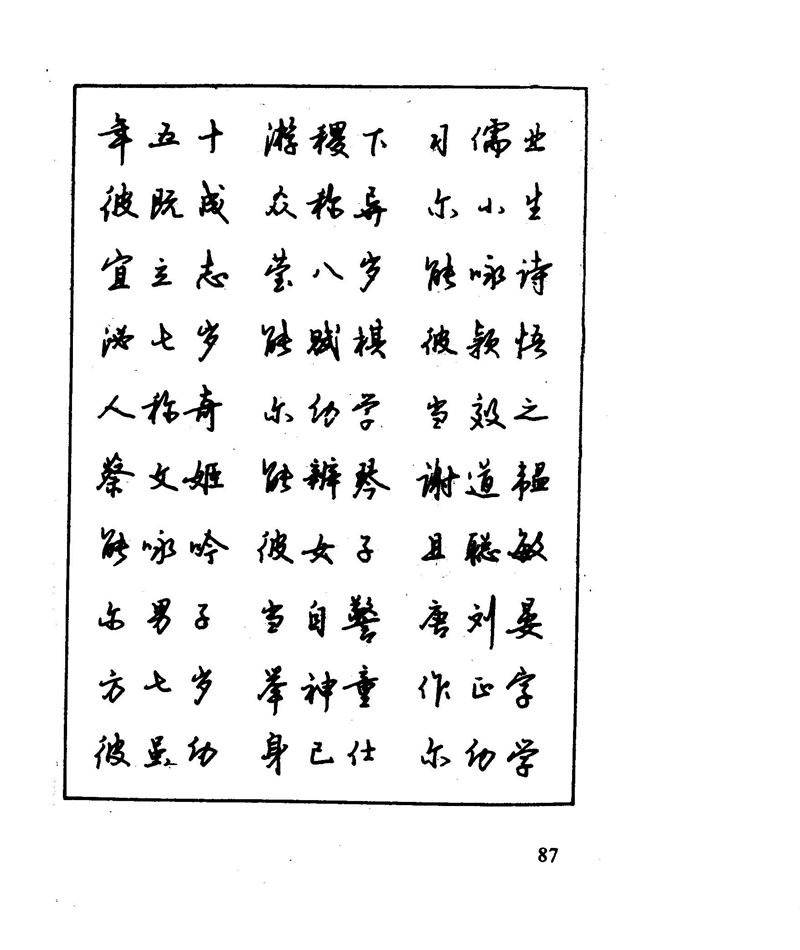 年五十 游稷下 习儒业
彼既成 众称异 尔小生
宜立志 莹八岁 能咏诗
泌七岁 能赋棋 彼颖悟
人称奇 尔幼学 当效之
蔡文姬 能辨琴 谢道韫
能咏吟 彼女子 且聪敏
尔男子 当自警 唐刘晏
方七岁 举神童 作正字
彼虽幼 身已仕 尔幼学
87